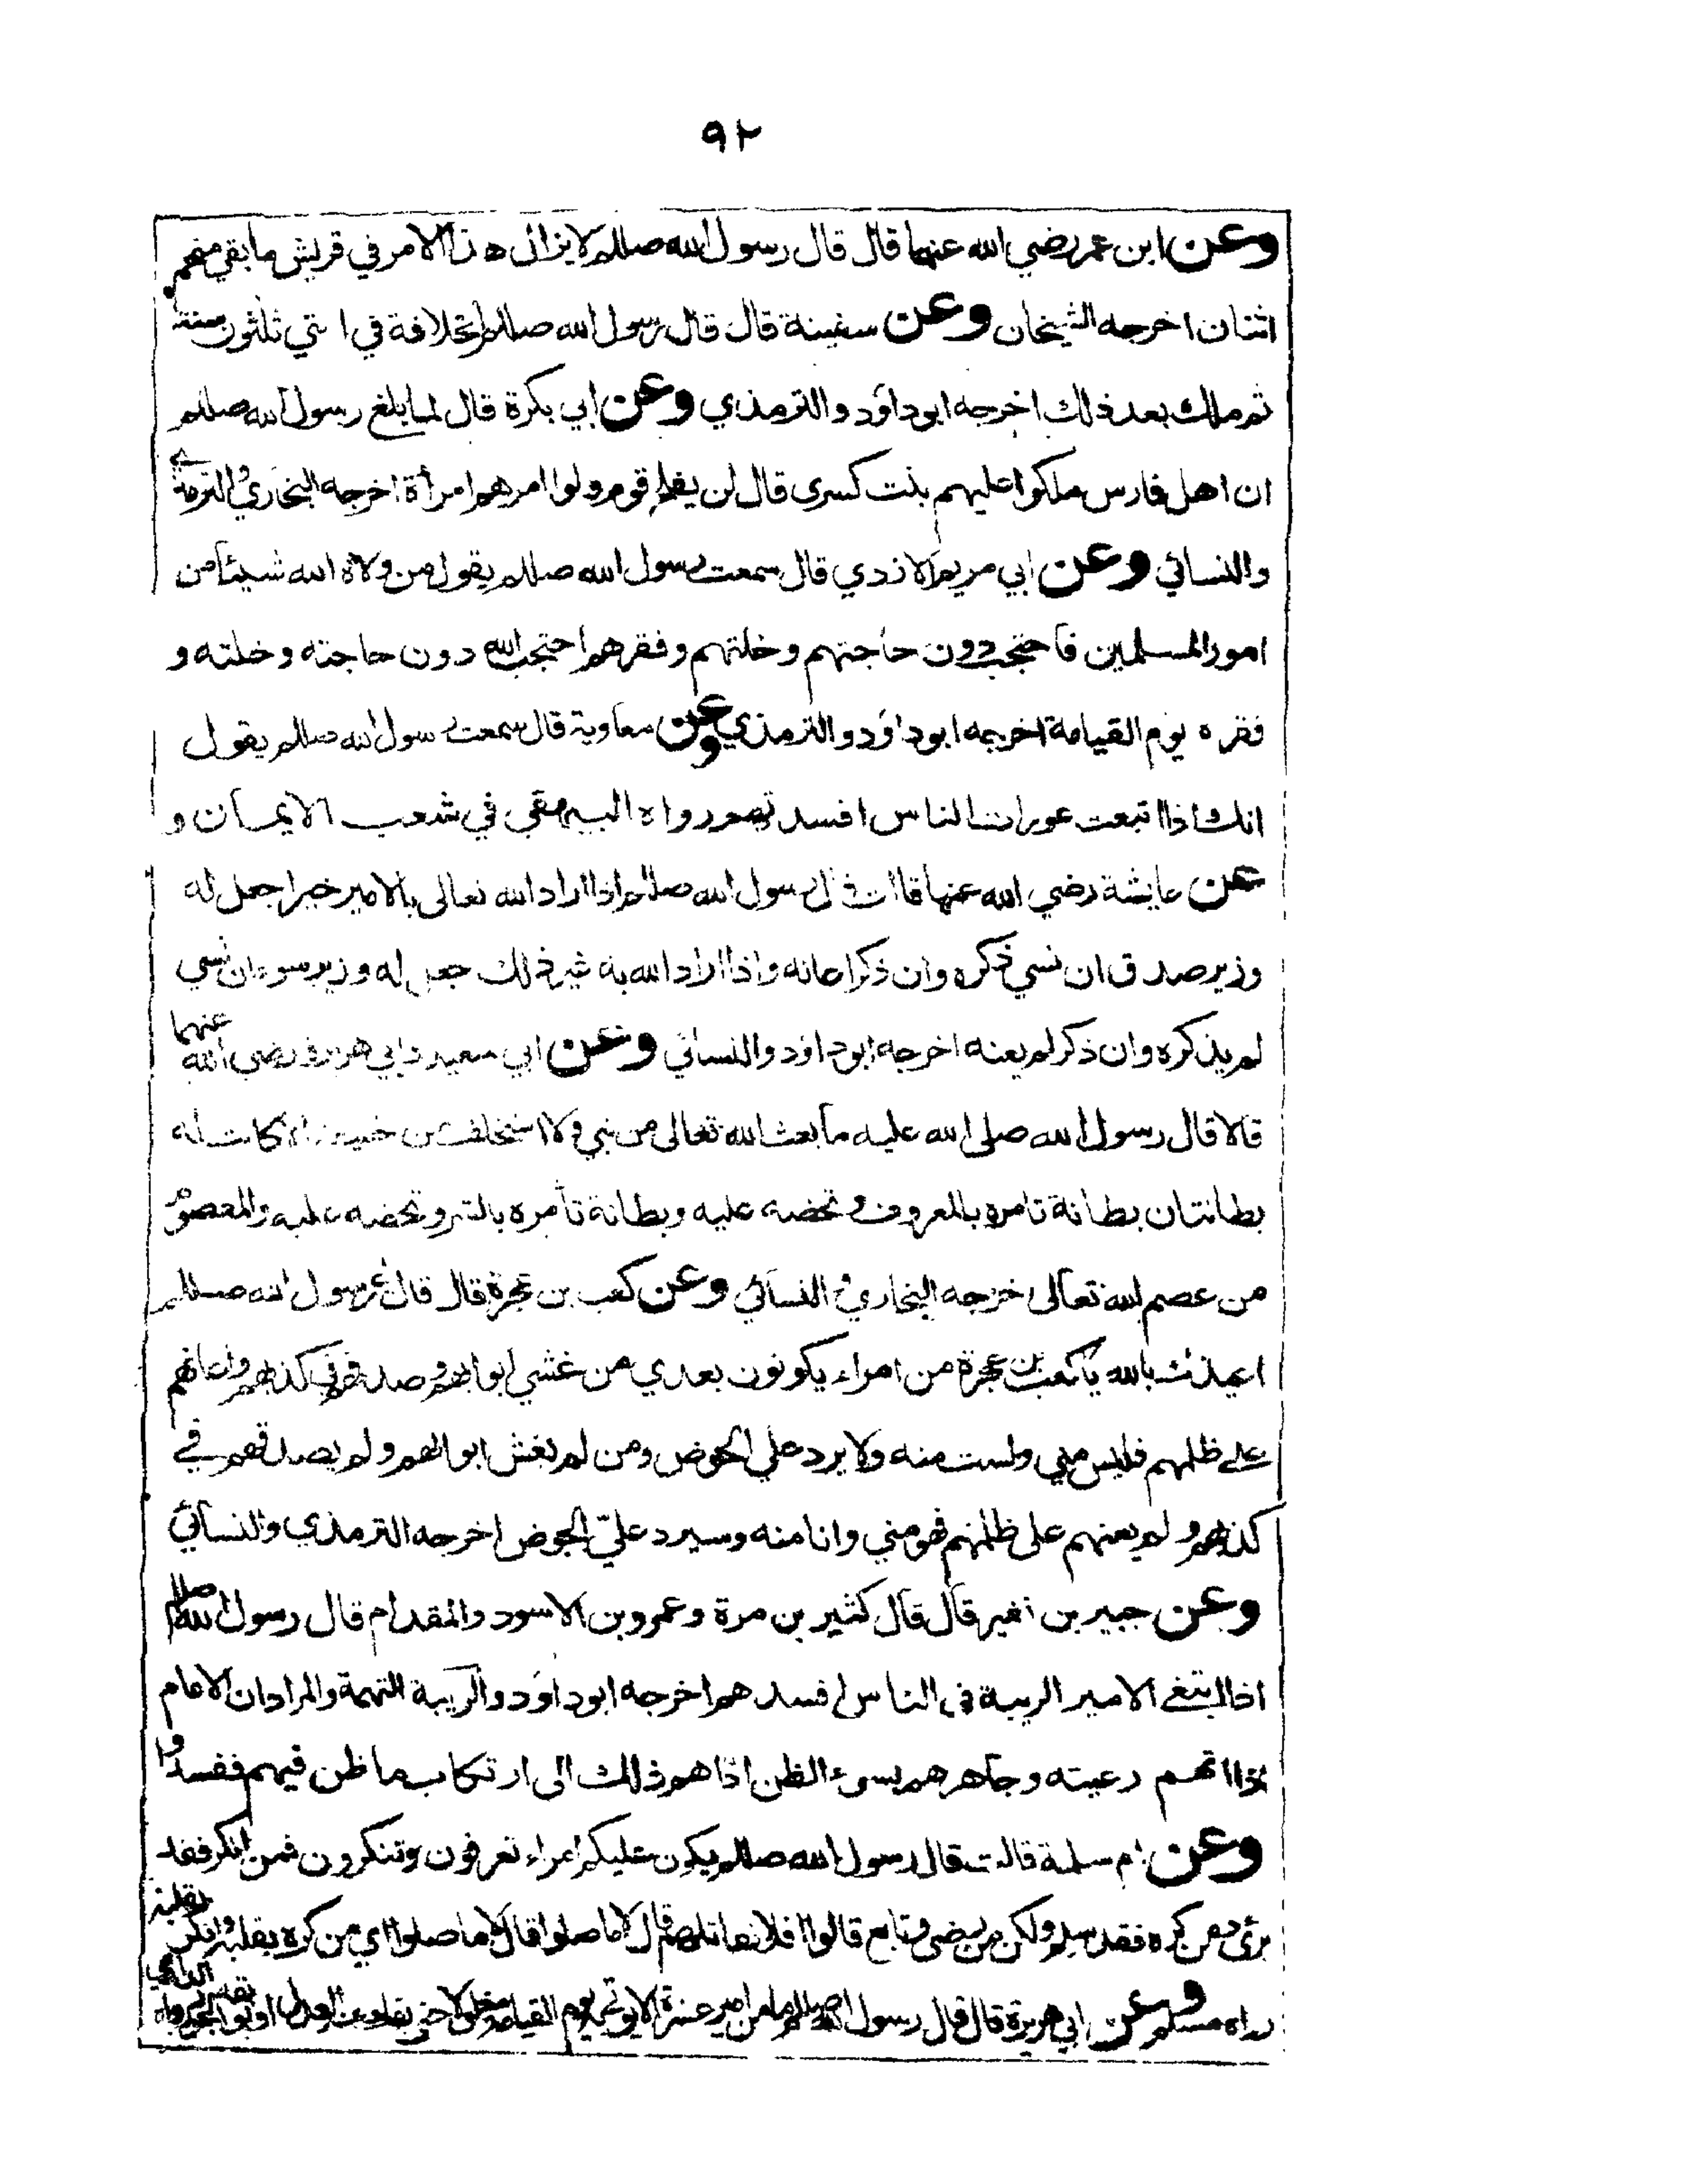 ٩٢
وعن ابن عمر رضي الله عنهما قال قال رسول الله صللم لا يزال هذا الامر في قريش ما بقي منهم
اثنان اخرجه الشيخان وعن سفينة قال قال رسول الله صللم الخلافة في امتي ثلثون سنة
ثم ملك بعد ذلك اخرجه ابو داؤد والترمذي وعن ابي بكرة قال لما بلغ رسول الله صللم
ان اهل فارس ملكوا عليهم بنت كسرى قال لن يفلح قوم ولوا امرهم امرأة اخرجه البخاري والترمذي
والنسائي وعن ابي مريم الازدي قال سمعت رسول الله صللم يقول من ولاه الله شيئا من
امور المسلمين فاحتجب دون حاجتهم وخلتهم وفقرهم احتجب الله دون حاجته وخلته و
فقره يوم القيامة اخرجه ابو داؤد والترمذي وعن معاوية قال سمعت رسول الله صللم يقول
انك اذا اتبعت عورات الناس افسدتهم رواه البيهقي في شعب الايمان و
عن عايشة رضي الله عنها قالت قال رسول الله صللم اذا اراد الله تعالى بالامير خيرا جعل له
وزير صدق ان نسي ذكره وان ذكر اعانه واذا اراد الله به غير ذلك جعل له وزير سوء ان نسي
لم يذكره وان ذكر لم يعنه اخرجه ابو داؤد والنسائي وعن ابي سعيد وابي هريرة رضي الله عنهما
قالا قال رسول الله صلى الله عليه ما بعث الله تعالى من نبي ولا استخلف من خليفة الا كانت له
بطانتان بطانة تامره بالمعروف وتحضه عليه وبطانة تأمره بالشر وتحضه عليه والمعصوم
من عصم الله تعالى اخرجه البخاري والنسائي وعن كعب بن عجرة قال قال رسول الله صللم
اعيذك بالله يا كعب بن عجرة من امراء يكونون بعدي من غشي ابوابهم وصدقهم في كذبهم واعانهم
على ظلمهم فليس مني ولست منه ولا يرد علي الحوض ومن لم يغش ابوابهم ولم يصدقهم في
كذبهم ولم يعنهم على ظلمهم فهو مني وانا منه وسيرد علي الحوض اخرجه الترمذي والنسائي
وعن جبير بن نفير قال قال كثير بن مرة وعمرو بن الاسود والمقدام قال رسول الله صللم
اذا ابتغى الامير الريبة في الناس افسدهم اخرجه ابو داؤد والريبة التهمة والمراد ان الامام
اذا اتهم رعيته وجاهرهم بسوء الظن اذاهم ذلك الى ارتكاب ما ظن فيهم ففسدوا
وعن ام سلمة قالت قال رسول الله صللم يكون عليكم امراء تعرفون وتنكرون فمن انكر فقد
برئ ومن كره فقد سلم ولكن من رضي وتابع قالوا افلا نقاتلهم قال لا ما صلوا قال لا ما صلوا اي من كره بقلبه وانكر بقلبه
رواه مسلم وعن ابي هريرة قال قال رسول الله صللم ما من امير عشرة الا يؤتى يوم القيامة مغلولا حتى يفك عنه العدل او يوبقه الجور رواه الدارمي